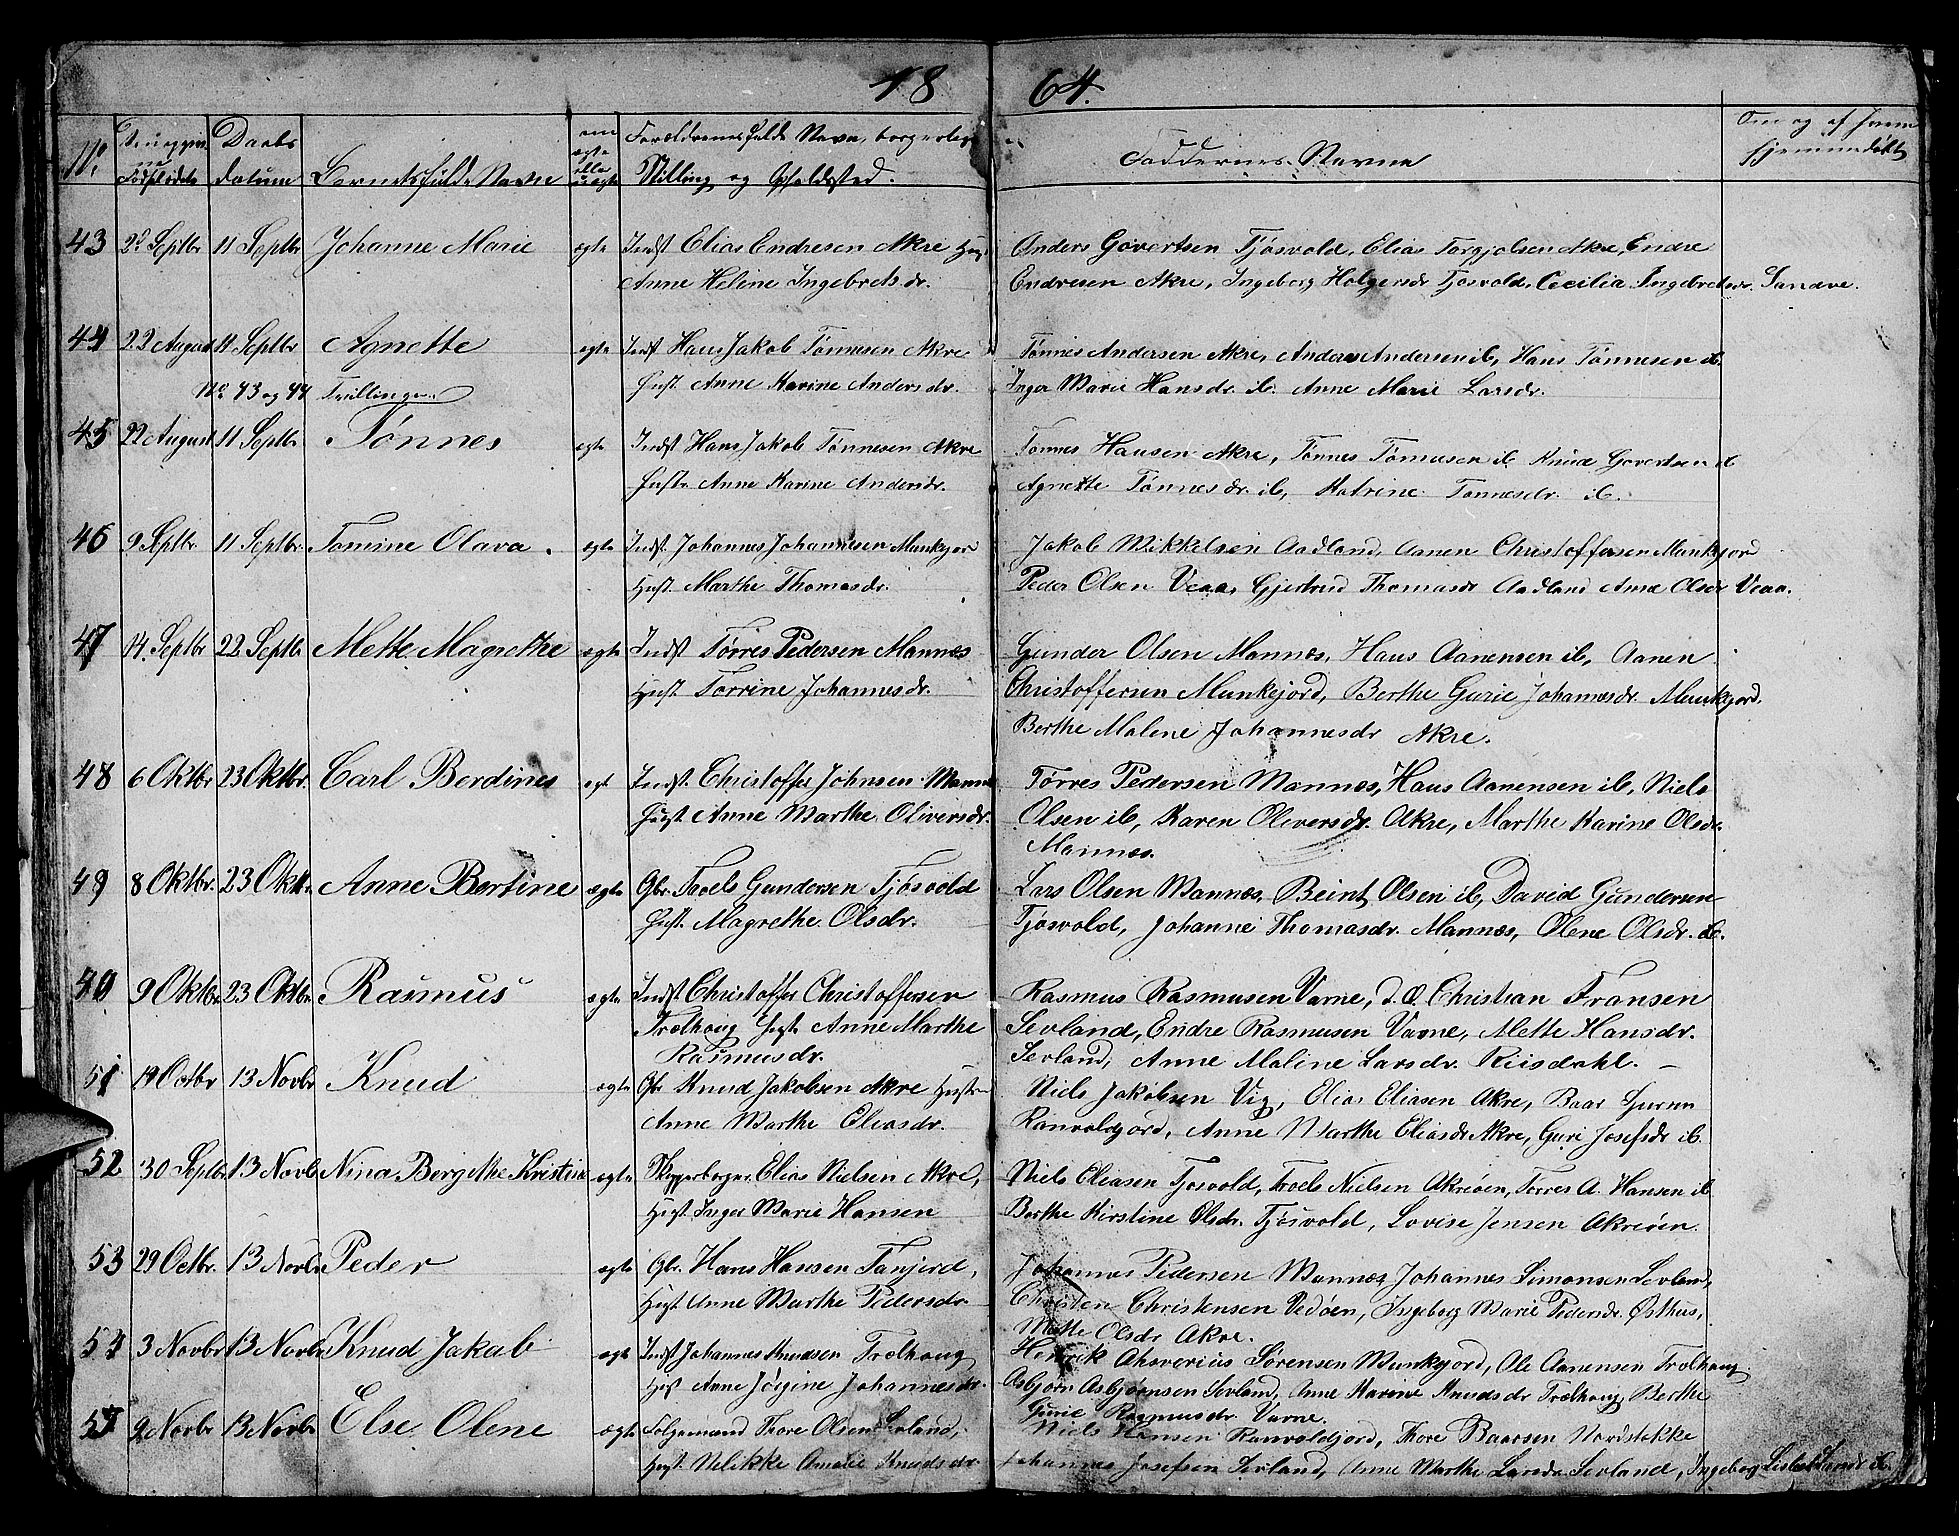 18 64.
No.
Daabs
datum
Barnets fulde Navn
ægte
Forældrenes fulde Navn, borgerlige
Stilling og Opholdssted.
Faddernes Navne
43 2 Septbr 11 Septbr Johanne Marie ægte Indst Elias Endresen Akre Hust
Anne Heline Ingebretsdr.
Anders Govertsen Tjøsvold, Elias Torgjolsen Akre, Endre
Endresen Akre, Ingeborg Holgersdr Tjøsvold, Cecilia Ingebretsdr. Sandve.
44 22 August 11 Septbr Agnette ægte Indst Hans Jakob Tønnesen Akre
Hust. Anne Karine Andersdr.
Tønnes Andersen Akre, Anders Andersen ib, Hans Tønnesen ib
Inger Marie Hansdr. ib. Anne Marie Larsdr.
No 43 og 44 Tvillinger
45 22 August 11 Septbr Tønnes ægte Indst Hans Jakob Tønnesen Akre
Hustr Anne Karine Andersdr.
Tønnes Hansen Akre, Tønnes Tønnesen ib Knud Govertsen ib
Agnette Tønnesdr. ib, Katrine Tønnesdr. ib.
46 9 Septbr. 11 Septbr. Tomine Olava. ægte Indst. Johannes Johannesen Munkejord
Hust. Marthe Thomasdr.
Jakob Mikkelsen Aadland, Aanen Christoffersen Munkejord
Peder Olsen Veaa, Gjertrud Thomasdr Aadland Anna Olsdr Veaa.
47 14. Septbr 22 Septbr Mette Magrethe ægte Indst Tørres Pedersen Mannes
Hust. Torrine Johannesdr.
Gunder Olsen Mannes, Hans Aanensen ib, Aanen
Christoffersen Munkejord, Berthe Gurie Johannesdr. Munkejord.
Berthe Malene Johannesdr Akre.
48 6 Oktbr 23 Oktbr. Carl Berdines ægt Indst. Christoffer Johnsen Mannes
Hust. Anne Marthe Oliversdr.
Tørres Pedersen Mannes, Hans Aanensen ib, Niels
Olsen ib, Karen Oliversdr. Akre, Marthe Karine Olsdr.
Mannes.
49 8 Oktbr. 23 Oktbr. Anne Bertine ægte Gbr. Troels Gundersen Tjøsvold
Hust. Magrethe Olsdr.
Lars Olsen Mannes, Beint Olsen ib, David Gundersen
Tjøsvold, Johanne Thomasdr. Mannes, Olene Olsdr. ib.
9 Oktbr 23 Oktbr Rasmus ægte Indst Christoffer Christoffersen
Trælhaug Hust. Anne Marthe
Rasmusdr.
Rasmus Rasmusen Varne, d. O. Christian Fransen
Sevland, Endre Rasmusen Varne, Mette Hansdr.
Sevland, Anne Maline Larsdr. Riisdahl.
51 19 Octbr 13 Novbr Knud ægte Gbr Knud Jakobsen Akre Hustr
Anne Marthe Eliasdr.
Niels Jakobsen Vig, Elias Eliasen Akre, Baar
Ranvolgjord, Anne Marthe Eliasdr Akre, Guri Josefsdr ib.
52 30 Septbr 13 Novbr Nina Bergethe Kristine ægte Skipperborger Elias Nielsen Akre,
Hust. Inger Marie Hansen
Niels Eliasen Tjosvold, Troels Nielsen Akreøen, Torres A. Hansen ib
Berthe Kirstine Olsdr. Tjøsvold, Lovise Jensen Akreøen.
53 29 Octbr. 13 Novbr Peder ægte Gbr. Hans Hansen Tanjerd,
Hust Anne Marthe Pedersdr
Johannes Pedersen Mannes Johannes Simonsen Sevland,
Christen Christensen Vedøen, Ingeborg Marie Pedersdr. Østhus,
Mette Olsdr Akre.
54 3 Novbr 13 Novbr Knud Jakob ægte Indst Johannes Knudsen Trælhaug
Hust Anne Jørgine Johannesdr.
Henrik Ahsverius Sørensen Munkejord, Ole Aanensen Trælhaug.
Asbjørn Asbjørnsen Sevland, Anne Karine Knudsdr Trælhaug Berthe
Gurie Rasmusdr. Varne.
55 2 Novbr 13 Novbr Else Olene ægte Folgemand Thore Olsen Sevland,
Hust. Nilikke Amalie Knudsdr
Niels Hansen Ranvoldjord, Thore Baarsen Nordstokke
Johannes Josefsen Sevland, Anne Marthe Larsdr Sevland, Ingeborg Larsdr ib